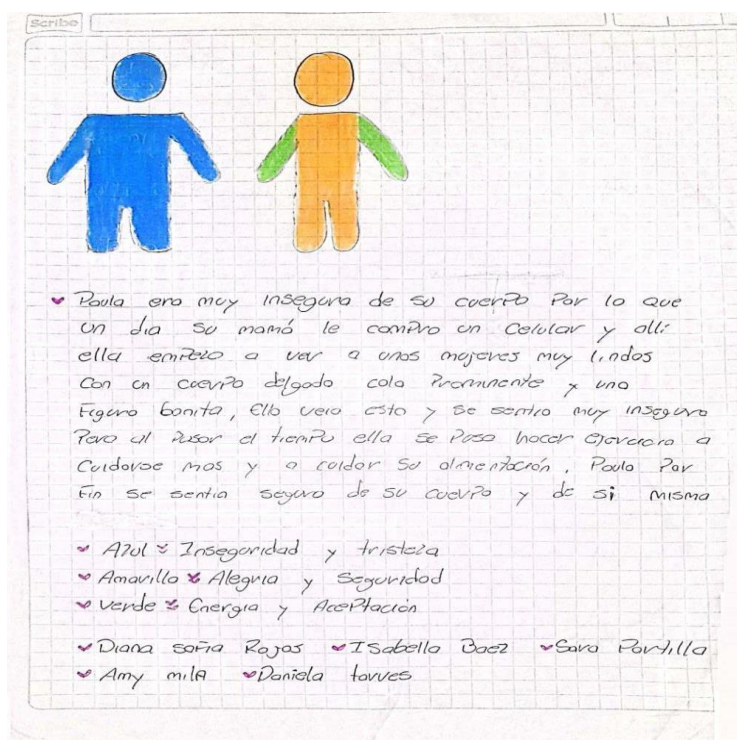 Scribe
Paula era muy insegura de su cuerpo Por lo que
un dia su mamá le compro un Celular y alli
ella empezo a ver a unas mujeres muy lindas
Con un cuerpo delgado cola Prominente y una
Figura bonita, Ella veia esto y se sentia muy insegura
Pero al Pasar el tiempo ella se Puso hacer Ejercicio a
Cuidarse mas y a cuidar su alimentación, Paula Por
Fin se sentia segura de su cuerpo y de si misma
Azul Inseguridad y tristeza
Amarillo Alegria y Seguridad
Verde Energia y Aceptación
Diana sofia Rojas Isabella Baez Sara Portilla
Amy mila Daniela torres